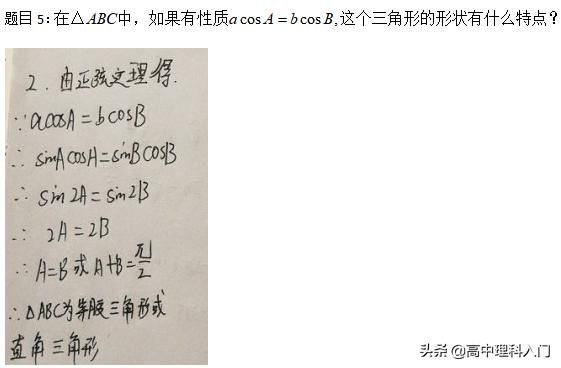 题目5:在△ABC中，如果有性质a cos A = b cos B,这个三角形的形状有什么特点？
2. 由正弦定理得.
∵acosA=bcosB
∴ sinAcosA=sinBcosB
∴ sin2A=sin2B
∴ 2A=2B
∴A=B或A+B=π/2
∴△ABC为等腰三角形或
直角三角形
头条 @高中理科入门